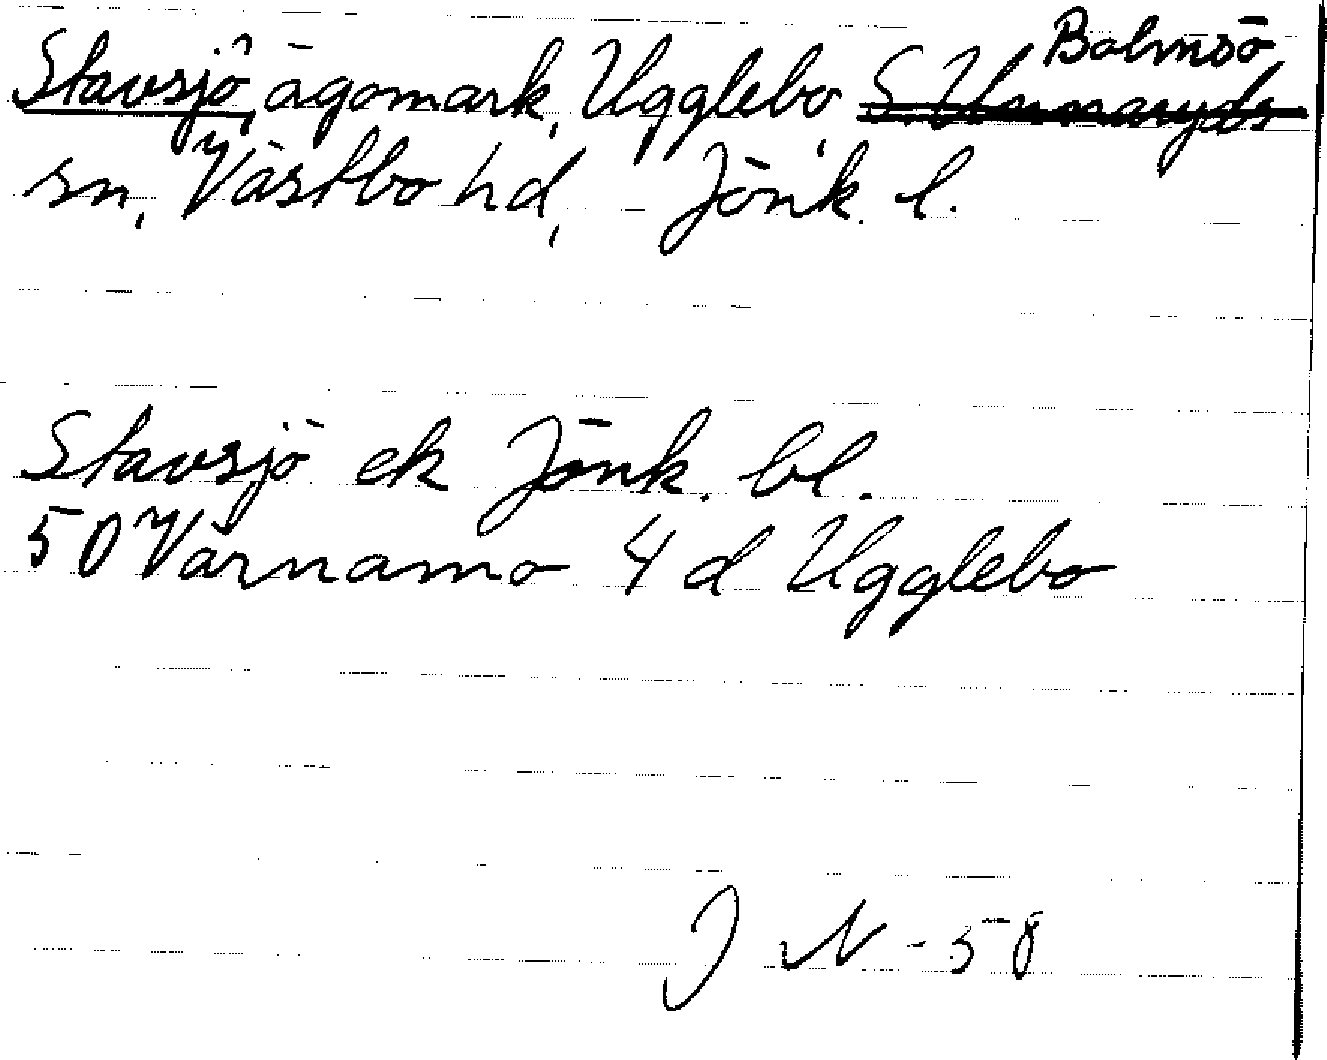 Bolmsö
Stavsjö, ägomark, Ugglebo, S. Unnaryds
sn, Västbo hd, Jönk. l.
Stavsjö ek Jönk. bl.
50 Värnamo 4 d Ugglebo
J N -58